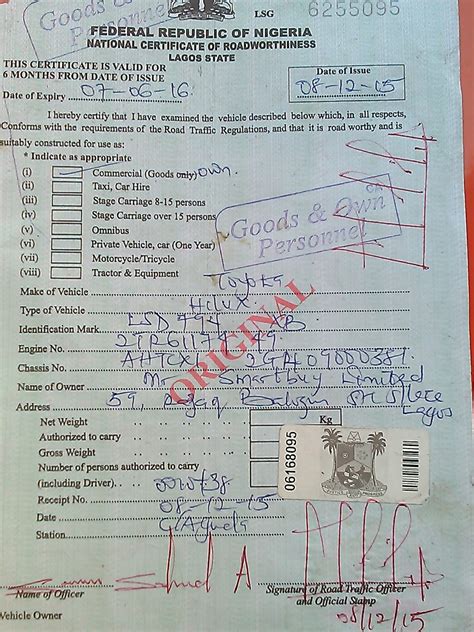 Goods & Own
Personnel
LSG 6255095
FEDERAL REPUBLIC OF NIGERIA
NATIONAL CERTIFICATE OF ROADWORTHINESS
LAGOS STATE
THIS CERTIFICATE IS VALID FOR
6 MONTHS FROM DATE OF ISSUE
Date of Issue
Date of Expiry 07-06-16 08-12-15
I hereby certify that I have examined the vehicle described below which, in all respects,
Conforms with the requirements of the Road Traffic Regulations, and that it is road worthy and is
suitably constructed for use as:
* Indicate as appropriate
(i) Commercial (Goods only) own
(ii) Taxi, Car Hire
(iii) Stage Carriage 8-15 persons
(iv) Stage Carriage over 15 persons
(v) Omnibus
(vi) Private Vehicle, car (One Year)
(vii) Motorcycle/Tricycle
(viii) Tractor & Equipment
Goods & Own
Personnel
Make of Vehicle Toyota
Type of Vehicle Hilux
Identification Mark LSD 794 XB
Engine No.
Chassis No.
ORIGINAL
Name of Owner Mr Smartbuy Limited
Address 59, Lagos
Net Weight Kg
Authorized to carry
Gross Weight
Number of persons authorized to carry
(including Driver)
Receipt No.
Date 08-12-15
Station
06168095
Name of Officer
Signature of Road Traffic Officer
and Official Stamp
Vehicle Owner
08/12/15